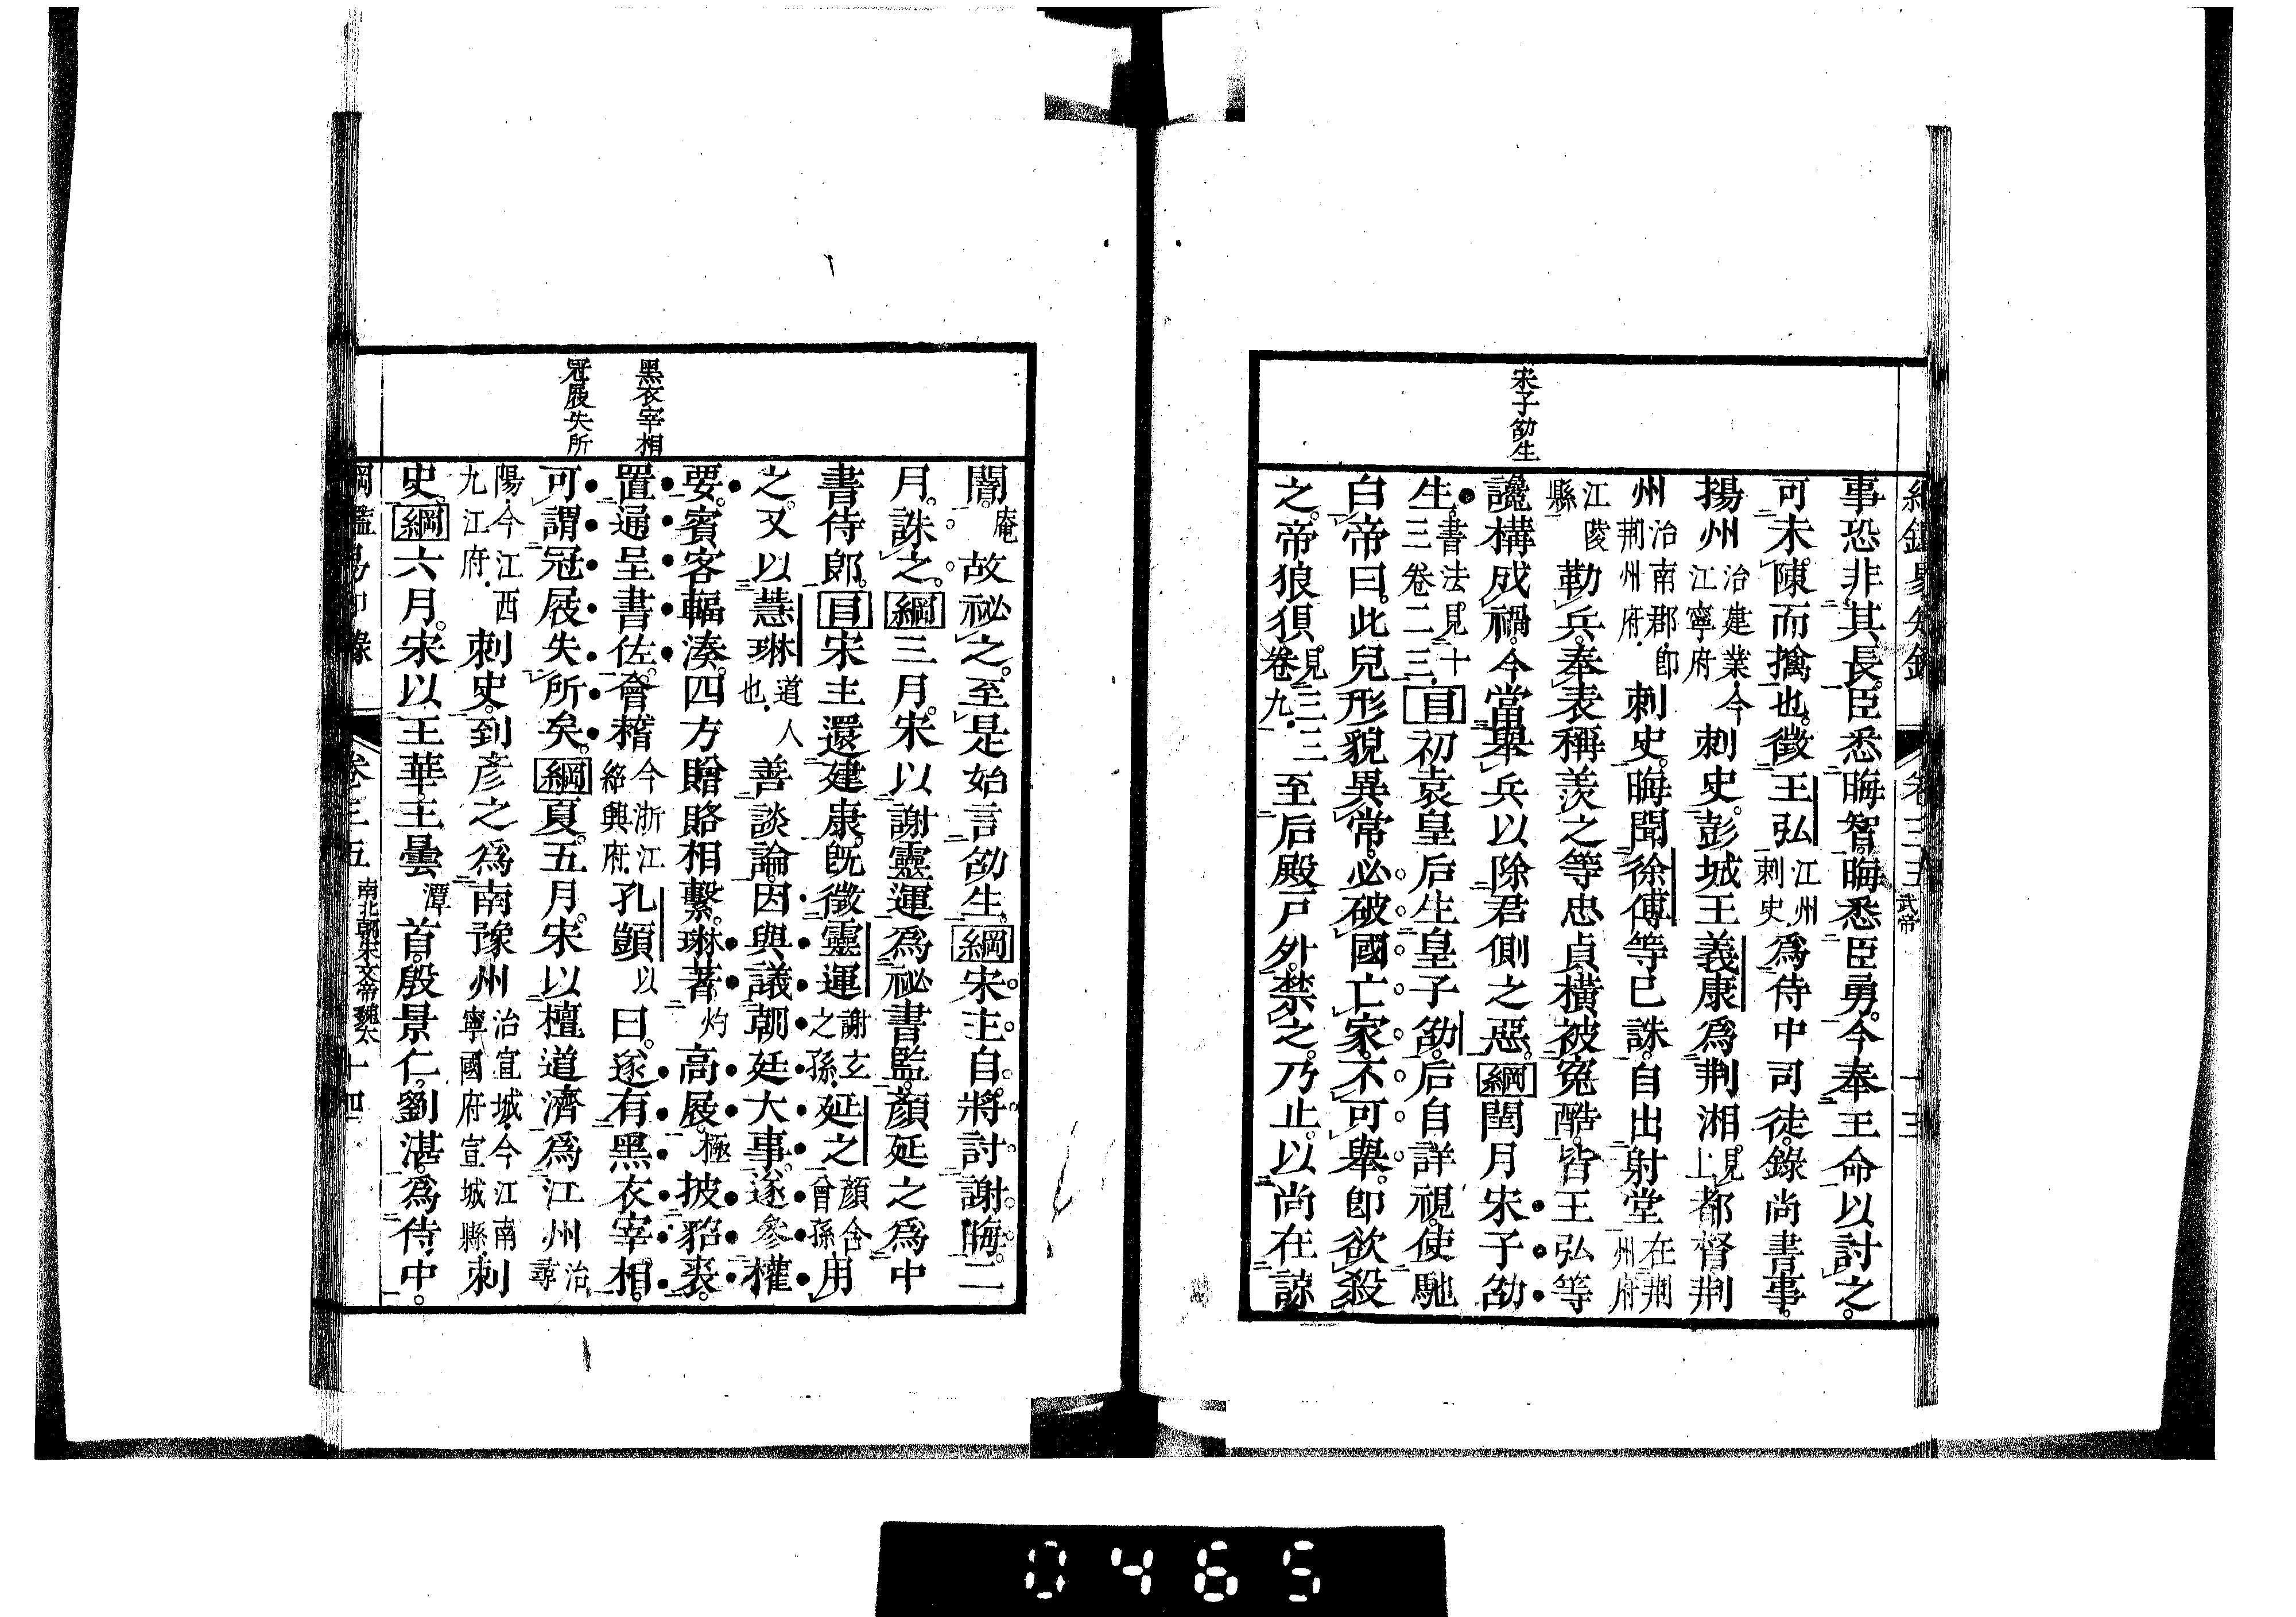 宋子劭生
事恐非其長臣悉晦智晦悉臣勇今奉王命以討之
可未陳而擒也徵王弘江州刺史爲侍中司徒錄尚書事
揚州治建業今江寧府刺史彭城王義康爲荆湘見上都督荆
州治南郡即荆州府刺史晦聞徐傅等已誅自出射堂在荆州府
江陵縣勒兵奉表稱羨之等忠貞橫被寃酷皆王弘等
讒構成禍今當舉兵以除君側之惡綱閏月宋子劭
生書法見十三卷二三目初袁皇后生皇子劭后自詳視使馳
白帝曰此兒形貌異常必破國亡家不可舉即欲殺
之帝狼狽見三三卷九至后殿戸外禁之乃止以尚在諒
黑衣宰相
冠屐失所
闇庵故祕之至是始言劭生綱宋主自將討謝晦二
月誅之綱三月宋以謝靈運爲祕書監顏延之爲中
書侍郎目宋主還建康旣徵靈運謝玄之孫延之顏含曾孫用
之又以慧琳道人也善談論因與議朝廷大事遂參權
要賓客輻湊四方贈賂相繫琳著灼高屐極披貂裘
置通呈書佐會稽今浙江紹興府孔顗以曰遂有黑衣宰相
可謂冠屐失所矣綱夏五月宋以檀道濟爲江州治尋
陽今江西九江府刺史到彥之爲南豫州治宣城今江南寧國府宣城縣刺
史綱六月宋以王華王曇潭首殷景仁劉湛爲侍中
卷三五 南北朝宋文帝魏太 十四